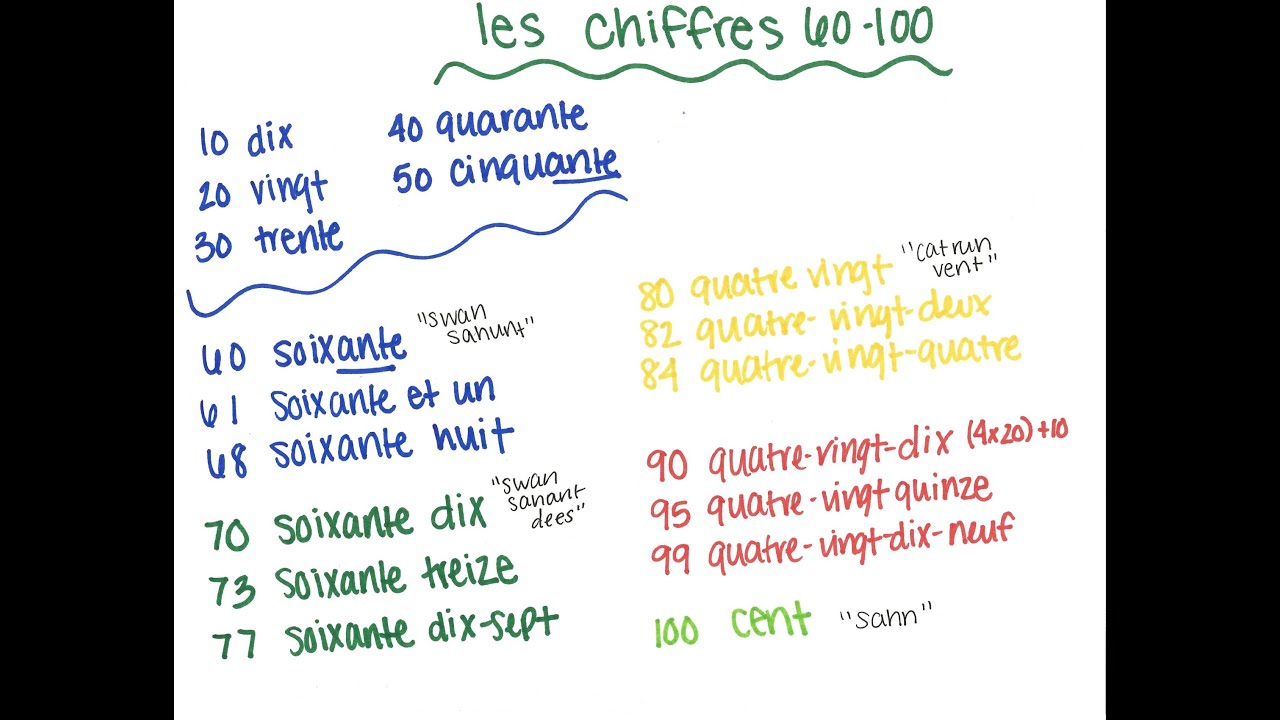 les chiffres 60-100
10 dix
20 vingt
30 trente
40 quarante
50 cinquante
60 soixante "swan
sahunt"
61 soixante et un
68 soixante huit
70 soixante dix "swan
sahant
dees"
73 soixante treize
77 soixante dix-sept
80 quatre vingt "cat run
vent"
82 quatre-vingt-deux
84 quatre-vingt-quatre
90 quatre-vingt-dix (4x20)+10
95 quatre-vingt quinze
99 quatre-vingt-dix-neuf
100 cent "sahn"